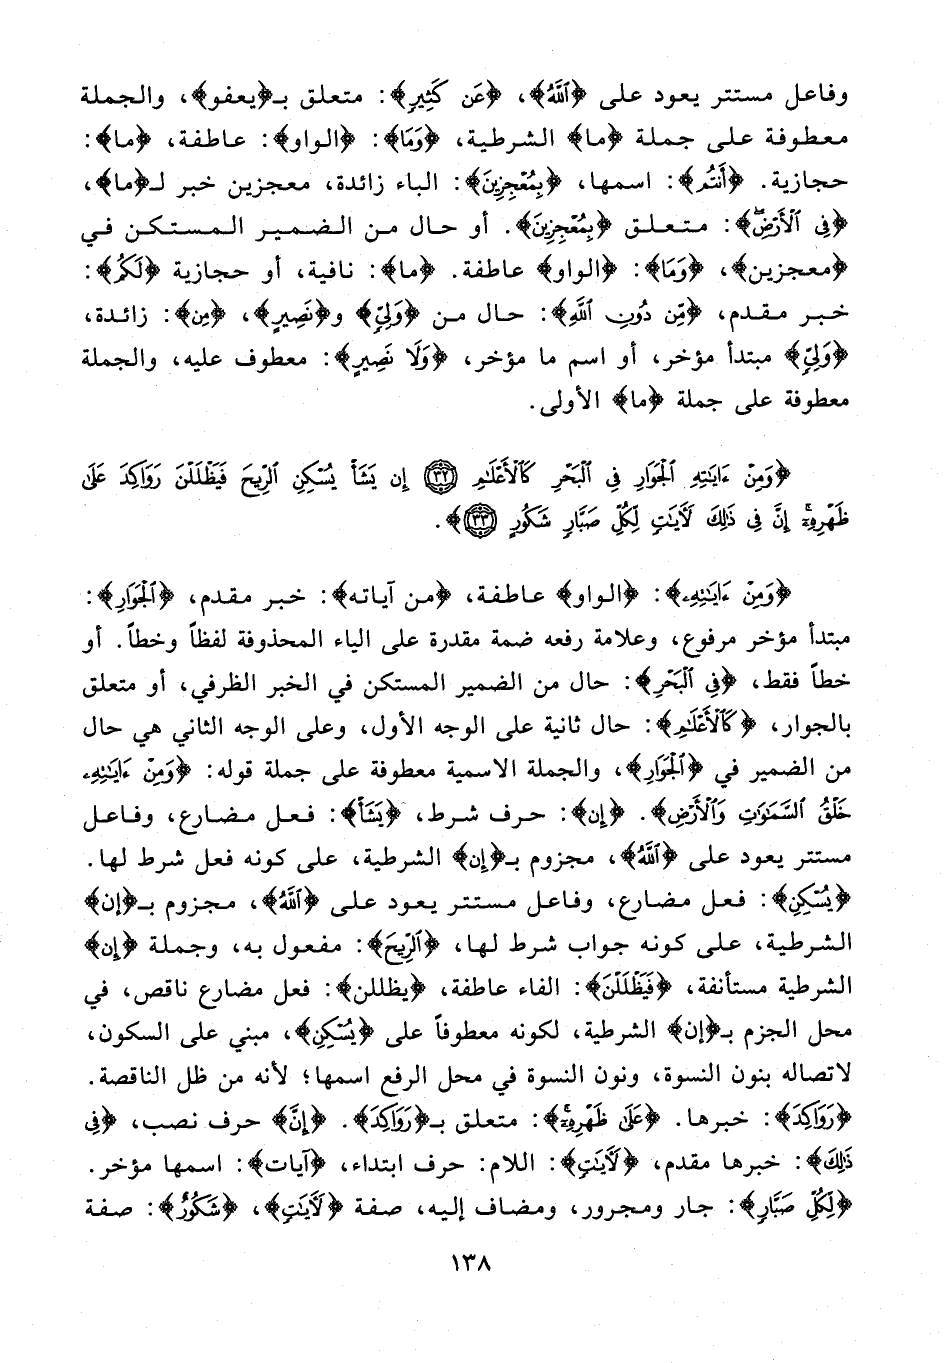 وفاعل مستتر يعود على ﴿اللَّهُ﴾، ﴿عَن كَثِيرٍ﴾: متعلق بـ﴿يعفو﴾، والجملة
معطوفة على جملة ﴿ما﴾ الشرطية، ﴿وَمَا﴾: ﴿الواو﴾: عاطفة، ﴿ما﴾:
حجازية. ﴿أَنتُم﴾: اسمها، ﴿بِمُعْجِزِينَ﴾: الباء زائدة، معجزين خبر لـ﴿ما﴾،
﴿فِي ٱلْأَرْضِ﴾: متعلق ﴿بِمُعْجِزِينَ﴾. أو حال من الضمير المستكن في
﴿معجزين﴾، ﴿وَمَا﴾: ﴿الواو﴾ عاطفة. ﴿ما﴾: نافية، أو حجازية ﴿لَكُم﴾:
خبر مقدم، ﴿مِّن دُونِ ٱللَّهِ﴾: حال من ﴿وَلِيٍّ﴾ و﴿نَصِيرٍ﴾، ﴿مِن﴾: زائدة،
﴿وَلِيٍّ﴾ مبتدأ مؤخر، أو اسم ما مؤخر، ﴿وَلَا نَصِيرٍ﴾: معطوف عليه، والجملة
معطوفة على جملة ﴿ما﴾ الأولى.
﴿وَمِنْ ءَايَٰتِهِ ٱلْجَوَارِ فِي ٱلْبَحْرِ كَٱلْأَعْلَٰمِ ٣٢ إِن يَشَأْ يُسْكِنِ ٱلرِّيحَ فَيَظْلَلْنَ رَوَاكِدَ عَلَىٰ
ظَهْرِهِۦٓ إِنَّ فِي ذَٰلِكَ لَآيَٰتٍ لِّكُلِّ صَبَّارٍ شَكُورٍ ٣٣﴾.
﴿وَمِنْ ءَايَٰتِهِۦ﴾: ﴿الواو﴾ عاطفة، ﴿من آياته﴾: خبر مقدم، ﴿ٱلْجَوَارِ﴾:
مبتدأ مؤخر مرفوع، وعلامة رفعه ضمة مقدرة على الياء المحذوفة لفظاً وخطاً. أو
خطاً فقط، ﴿فِي ٱلْبَحْرِ﴾: حال من الضمير المستكن في الخبر الظرفي، أو متعلق
بالجوار، ﴿كَٱلْأَعْلَٰمِ﴾: حال ثانية على الوجه الأول، وعلى الوجه الثاني هي حال
من الضمير في ﴿ٱلْجَوَارِ﴾، والجملة الاسمية معطوفة على جملة قوله: ﴿وَمِنْ ءَايَٰتِهِۦ
خَلْقُ ٱلسَّمَٰوَٰتِ وَٱلْأَرْضِ﴾. ﴿إِن﴾: حرف شرط، ﴿يَشَأْ﴾: فعل مضارع، وفاعل
مستتر يعود على ﴿ٱللَّهُ﴾، مجزوم بـ﴿إن﴾ الشرطية، على كونه فعل شرط لها.
﴿يُسْكِنِ﴾: فعل مضارع، وفاعل مستتر يعود على ﴿ٱللَّهُ﴾، مجزوم بـ﴿إن﴾
الشرطية، على كونه جواب شرط لها، ﴿ٱلرِّيحَ﴾: مفعول به، وجملة ﴿إن﴾
الشرطية مستأنفة، ﴿فَيَظْلَلْنَ﴾: الفاء عاطفة، ﴿يظللن﴾: فعل مضارع ناقص، في
محل الجزم بـ﴿إن﴾ الشرطية، لكونه معطوفاً على ﴿يُسْكِنِ﴾، مبني على السكون،
لاتصاله بنون النسوة، ونون النسوة في محل الرفع اسمها؛ لأنه من ظل الناقصة.
﴿رَوَاكِدَ﴾: خبرها. ﴿عَلَىٰ ظَهْرِهِۦٓ﴾: متعلق بـ﴿رَوَاكِدَ﴾. ﴿إِنَّ﴾ حرف نصب، ﴿فِي
ذَٰلِكَ﴾: خبرها مقدم، ﴿لَآيَٰتٍ﴾: اللام: حرف ابتداء، ﴿آيات﴾: اسمها مؤخر.
﴿لِكُلِّ صَبَّارٍ﴾: جار ومجرور، ومضاف إليه، صفة ﴿لَآيَٰتٍ﴾، ﴿شَكُورٌ﴾: صفة
١٣٨